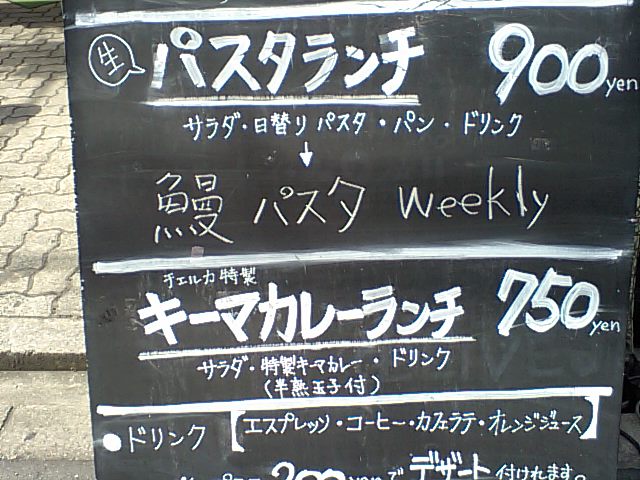 生 パスタランチ 900 yen
サラダ・日替り パスタ・パン・ドリンク
↓
鰻 パスタ Weekly
チェルカ特製
キーマカレーランチ 750 yen
サラダ・特製キーマカレー・ドリンク
(半熟玉子付)
●ドリンク [エスプレッソ・コーヒー・カフェラテ・オレンジジュース]
200 yenで デザート 付けれます。